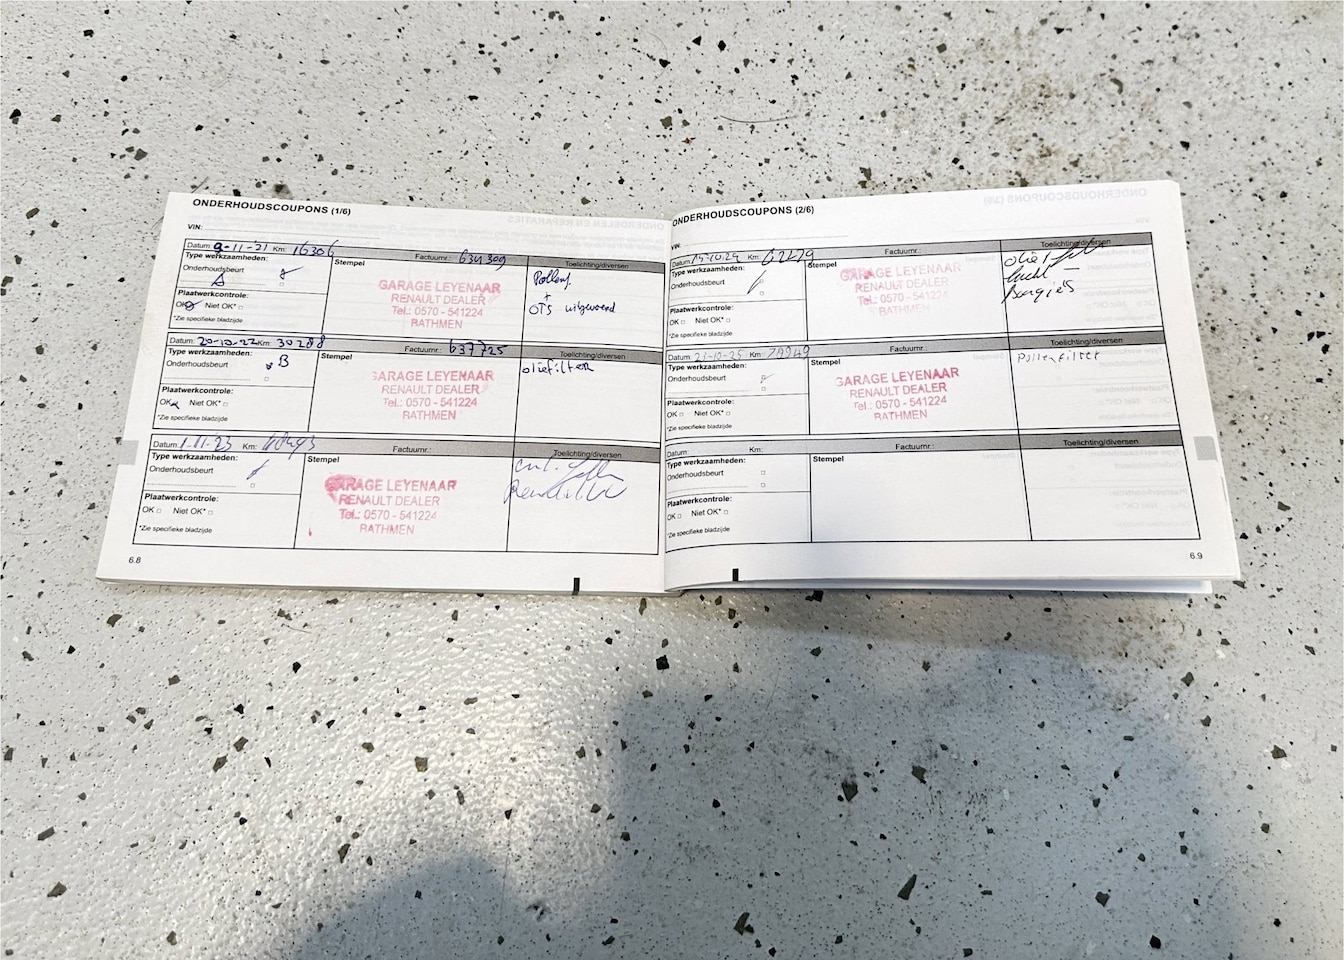 ONDERHOUDSCOUPONS (1/6)
VIN:
Datum: 9-11-21 Km: 16306 Factuurnr.: 634309 Toelichting/diversen
Type werkzaamheden: Stempel
Onderhoudsbeurt
A
Plaatwerkcontrole:
OK Niet OK*
*Zie specifieke bladzijde
GARAGE LEYENAAR
RENAULT DEALER
Tel.: 0570 - 541224
RATHMEN
Pollenf.
+
OTS uitgevoerd
Datum: 20-10-22 Km: 30288 Factuurnr.: 637725 Toelichting/diversen
Type werkzaamheden: Stempel
Onderhoudsbeurt B
Plaatwerkcontrole:
OK Niet OK*
*Zie specifieke bladzijde
GARAGE LEYENAAR
RENAULT DEALER
Tel.: 0570 - 541224
RATHMEN
oliefilter
Datum: 1-11-23 Km: Factuurnr.: Toelichting/diversen
Type werkzaamheden: Stempel
Onderhoudsbeurt
Plaatwerkcontrole:
OK Niet OK*
*Zie specifieke bladzijde
GARAGE LEYENAAR
RENAULT DEALER
Tel.: 0570 - 541224
RATHMEN
6.8
ONDERHOUDSCOUPONS (2/6)
VIN:
Datum: 15-10-24 Km: 62479 Factuurnr.: Toelichting/diversen
Type werkzaamheden: Stempel
Onderhoudsbeurt
Plaatwerkcontrole:
OK Niet OK*
*Zie specifieke bladzijde
GARAGE LEYENAAR
RENAULT DEALER
Tel.: 0570 - 541224
RATHMEN
olie
lucht
bougies
Datum: 23-10-25 Km: 78949 Factuurnr.: Toelichting/diversen
Type werkzaamheden: Stempel
Onderhoudsbeurt
Plaatwerkcontrole:
OK Niet OK*
*Zie specifieke bladzijde
GARAGE LEYENAAR
RENAULT DEALER
Tel.: 0570 - 541224
RATHMEN
Pollenfilter
Datum: Km: Factuurnr.: Toelichting/diversen
Type werkzaamheden: Stempel
Onderhoudsbeurt
Plaatwerkcontrole:
OK Niet OK*
*Zie specifieke bladzijde
6.9